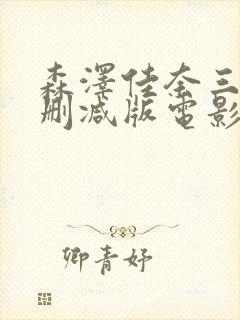 森澤佳奈三
刪減版電影
卿青妤